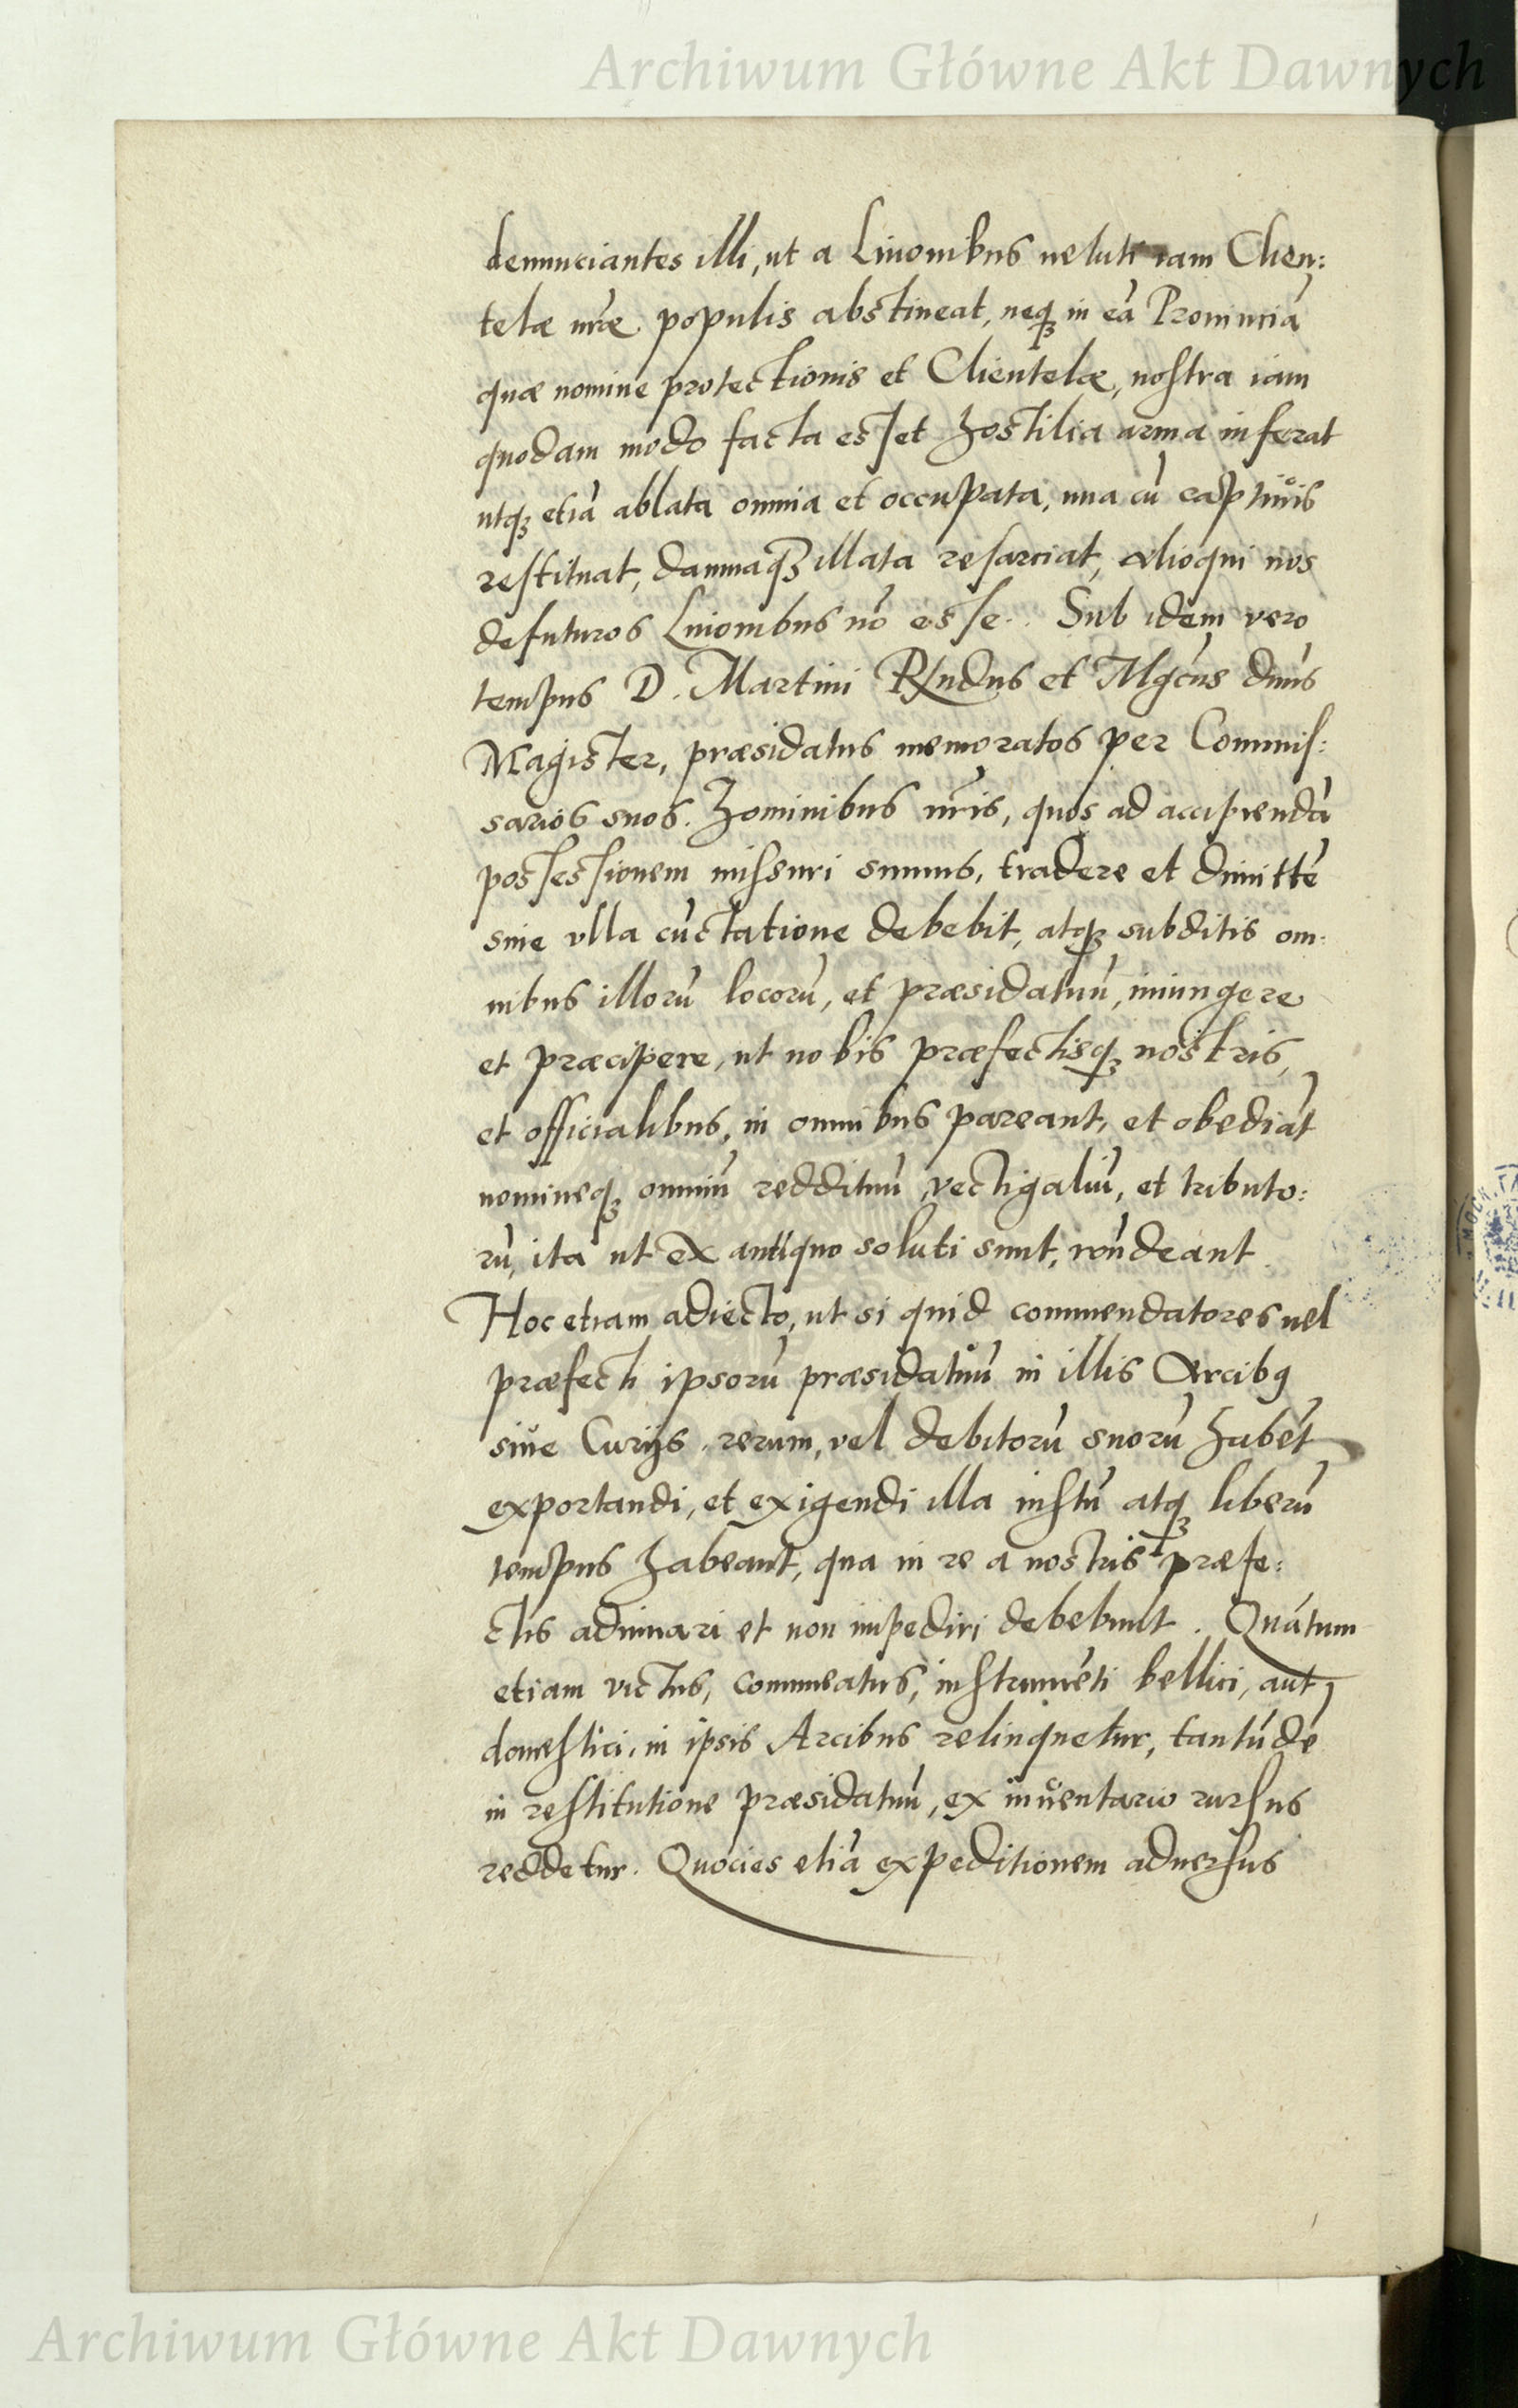 Archiwum Główne Akt Dawnych
denunciantes illi, ut a Liuonibus veluti iam Clien:
telæ nr̃æ populis abstineat, neqꝫ in eã Prouinciã
quæ nomine protectionis et Clientelæ, nostra iam
quodam modo facta esset hostilia arma inferat
utqꝫ etiã ablata omnia et occupata, una cũ captiuis
restituat, damnaqꝫ illata resarciat, alioqui nos
defuturos Liuonibus nõ esse. Sub idem vero
tempus D. Martini Rx̃ndus et Mgc̃us dñus
Magister, præsidatus memoratos per Commis:
sarios suos. Hominibus nr̃is, quos ad accipiendã
possessionem missuri sumus, tradere et dimitte͂
sine vlla cũctatione debebit, atqꝫ subditis om:
nibus illorũ locorũ, et præsidatuũ, iniungere
et præcipere, ut nobis præfectisqꝫ nostris,
et officialibus, in omnibus pareant, et obediãt
nomineqꝫ omniũ reddituũ, vectigaliũ, et tributo:
rũ, ita ut ex antiquo soluti sunt, rñdeant.
Hoc etiam adiecto, ut si quid commendatores uel
præfecti ipsorũ præsidatuũ in illis Arcibꝯ
siue Curijs, rerum, vel debitorũ suorũ habe͂t
exportandi, et exigendi illa iustũ atqꝫ liberũ
tempus habeant, qua in re a nostris præfe:
ctis adiuuari et non impediri debebunt. Quãtum
etiam victus, commeatus, instrume͂ti bellici, aut
domestici, in ipsis Arcibus relinquetur, tantũde͂
in restitutione præsidatuũ, ex inuentario rursus
reddetur. Quocies etiã expeditionem aduersus
Archiwum Główne Akt Dawnych